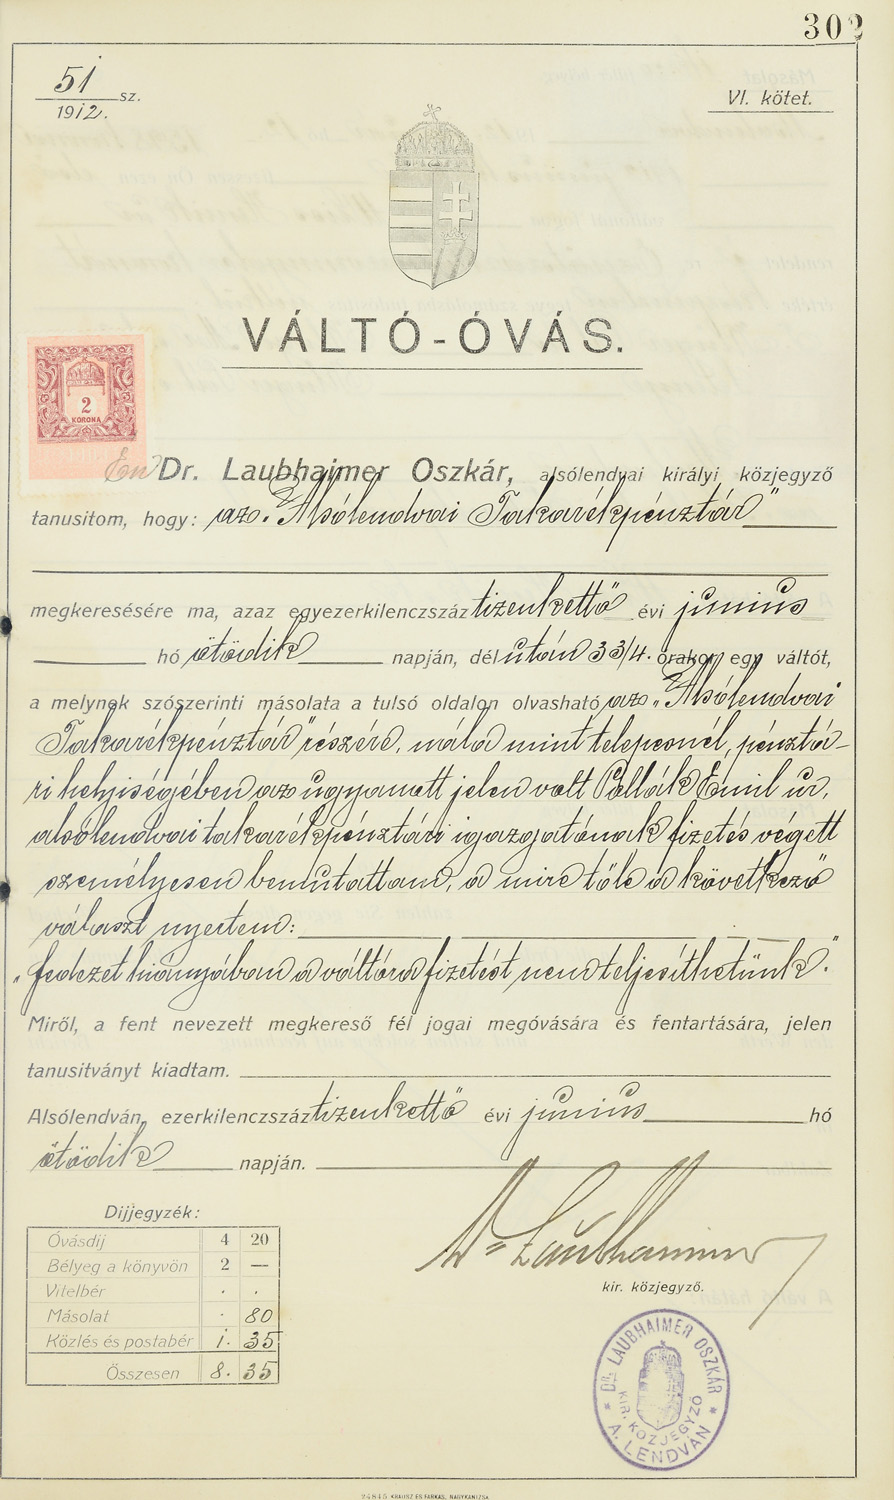 302
51 sz.
1912.
VI. kötet.
VÁLTÓ-ÓVÁS.
2
KORONA
Én Dr. Laubhaimer Oszkár, alsólendvai királyi közjegyző
tanusitom, hogy: az „Alsólendvai Takarékpénztár"
megkeresésére ma, azaz egyezerkilenczszáz tizenkettő évi junius
hó ötödik napján, délután 3 3/4. órakor egy váltót,
a melynek szószerinti másolata a tulsó oldalon olvasható az „Alsólendvai
Takarékpénztár" részére, nála mint telepesnél, pénztá-
ri helyiségében az ugyanott jelen volt Pollák Emil ur,
alsólendvai takarékpénztári igazgatónak fizetés végett
személyesen bemutattam, a mire tőle a következő
választ nyertem:
„fedezet hiányában a váltóra fizetést nem teljesíthetünk."
Miről, a fent nevezett megkereső fél jogai megóvására és fentartására, jelen
tanusitványt kiadtam.
Alsólendván, ezerkilenczszáz tizenkettő évi junius hó
ötödik napján.
Dr Laubhaimer
kir. közjegyző.
Dijjegyzék:
Óvásdij 4 20
Bélyeg a könyvön 2 —
Vitelbér . .
Másolat . 80
Közlés és postabér 1. 35
Összesen 8. 35
DR. LAUBHAIMER OSZKÁR
KIR. KÖZJEGYZŐ
A. LENDVÁN
24845 KRAUSZ ÉS FARKAS, NAGYKANIZSA.